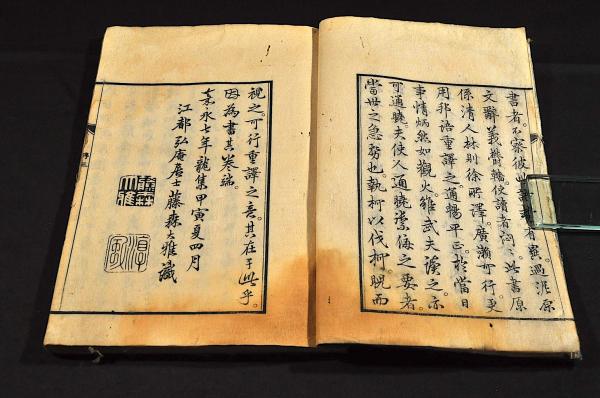 書者。不察彼此語有密。過泥原
文辭義。使讀者。此書原
係清人林則徐所譯。廣瀨可行更
用邦語重譯之。通暢平正。於當日
事情炳然如觀火。雖武夫讀之。亦
可通曉。夫使人通曉禦侮之要者。
當世之急務也。執柯以伐柯。睨而
視之。可行重譯之意。其在于此乎。
因為書其卷端
嘉永七年龍集甲寅夏四月
江都弘庵居士藤森大雅識
淳風